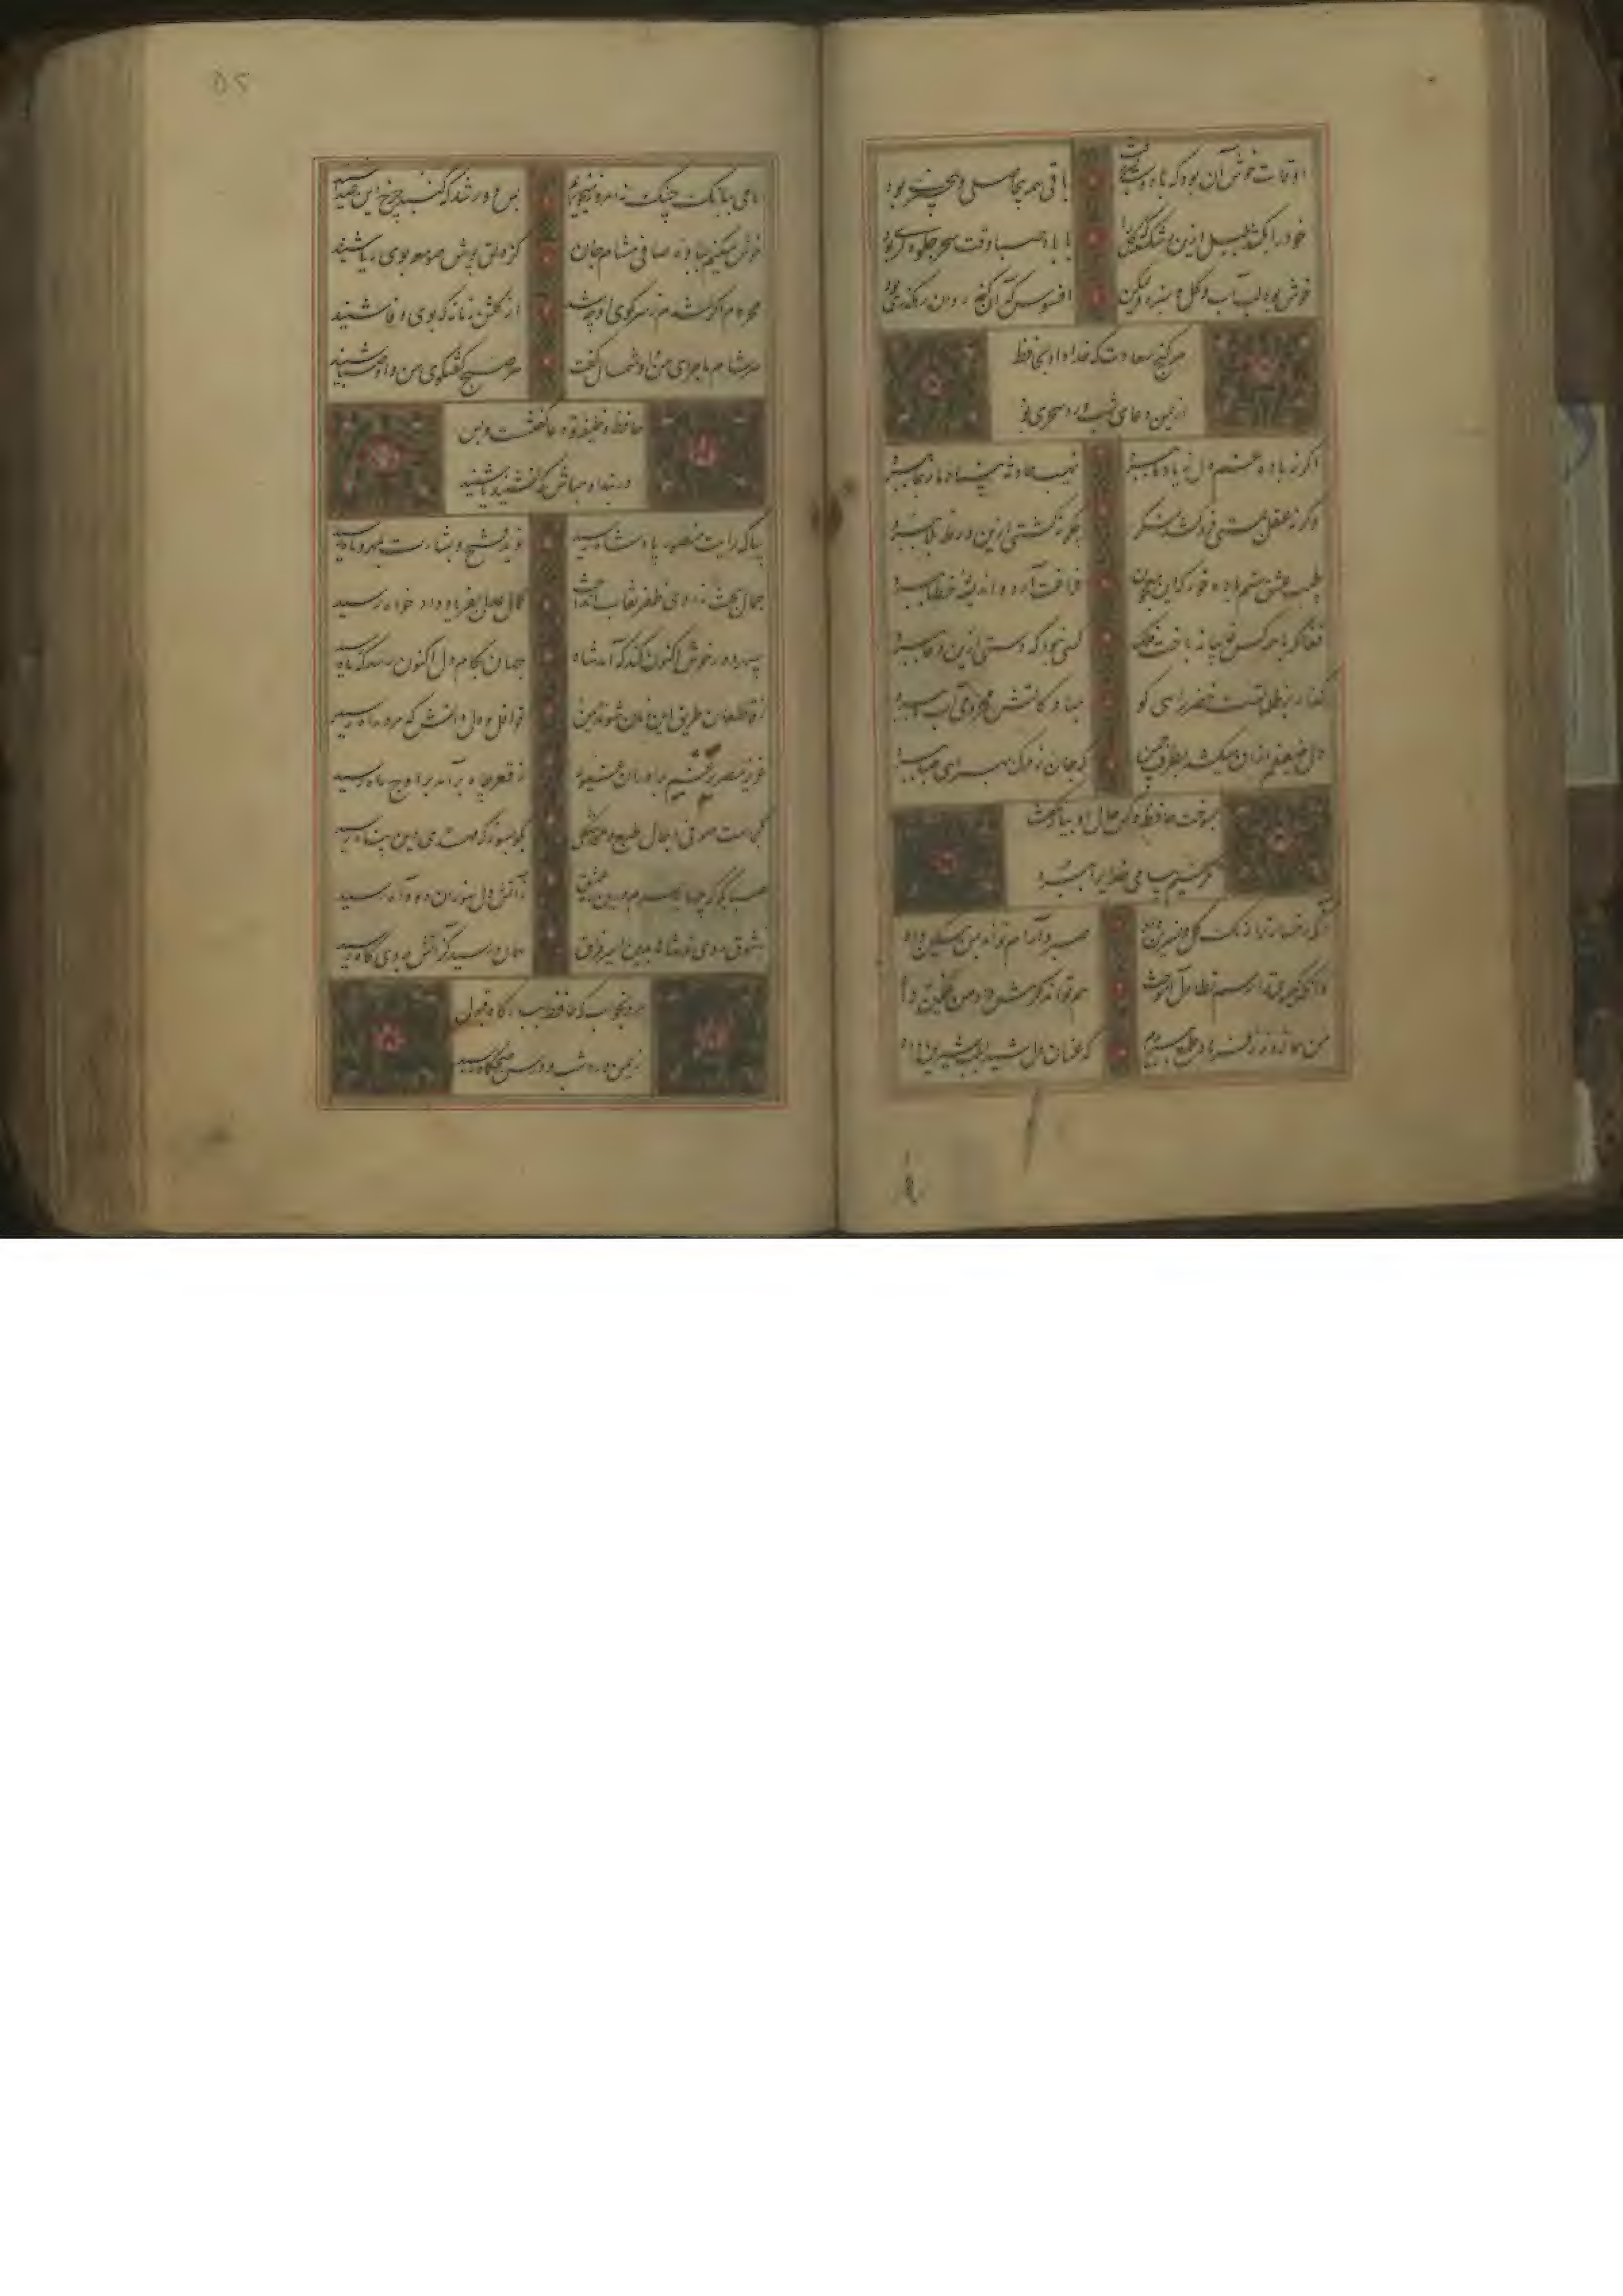 اوقات خوش آن بود که با دوست بسر رفت باقی همه بیحاصلی و بیخبری بود
خود را بکشد بلبل ازین رشک که گل را با باد صبا وقت سحر جلوه گری بود
خوش بود لب آب و گل و سبزه ولیکن افسوس که آن گنج روان رهگذری بود
هر گنج سعادت که خدا داد بحافظ
از یمن دعای شب و ورد سحری بود
اگر نه باده غم دل ز یاد ما ببرد نهیب حادثه بنیاد ما ز جا ببرد
وگر نه عقل بمستی فرو کشد لنگر چگونه کشتی ازین ورطه بلا ببرد
طبیب عشق منم باده خور که این معجون فراغت آرد و اندیشه خطا ببرد
فغان که با همه کس غایبانه باخت فلک کسی نبود که دستی ازین دغا ببرد
گذار بر ظلماتست خضر راهی کو مباد کاتش محرومی آب ما ببرد
دل ضعیفم از آن میکشد بطرف چمن که جان ز مرگ به بیماری صبا ببرد
بسوخت حافظ و کس حال او بیار نگفت
مگر نسیم پیامی خدایرا ببرد
آنکه رخسار ترا رنگ گل و نسرین داد صبر و آرام تواند بمن مسکین داد
وانکه گیسوی ترا رسم تطاول آموخت هم تواند کرمش داد من غمگین داد
من همان روز ز فرهاد طمع ببریدم که عنان دل شیدا بلب شیرین داد
ما می ببانگ چنگ نه امروز میخوریم بس دور شد که گنبد چرخ این صدا شنید
خوش میکنم بباده صافی مشام جان کز دلق پوش صومعه بوی ریا شنید
محروم اگر شدم ز سر کوی او چه شد از گلشن زمانه که بوی وفا شنید
هر شام ماجرای من و دل شمال گفت هر صبح گفتگوی من و او صبا شنید
حافظ وظیفه تو دعا گفتنست و بس
در بند آن مباش که نشنید یا شنید
بیا که رایت منصور پادشاه رسید نوید فتح و بشارت بمهر و ماه رسید
جمال بخت ز روی ظفر نقاب انداخت کمال عدل بفریاد دادخواه رسید
سپهر دور خوش اکنون کند که آمد شاه جهان بکام دل اکنون رسد که ماه رسید
ز قاطعان طریق این زمان شوند ایمن قوافل دل و دانش که مرد راه رسید
عزیز مصر برغم برادران غیور ز قعر چاه برآمد باوج ماه رسید
کجاست صوفی دجال طبع ملحد شکل بگو بسوز که مهدی دین پناه رسید
صبا بگو که چها بر سرم درین غم عشق ز آتش دل سوزان و دود آه رسید
ز شوق روی تو شاها بدین اسیر فراق همان رسید کز آتش بروی کاه رسید
مرو بخواب که حافظ ببارگاه قبول
ز یمن ورد شب و درس صبحگاه رسید